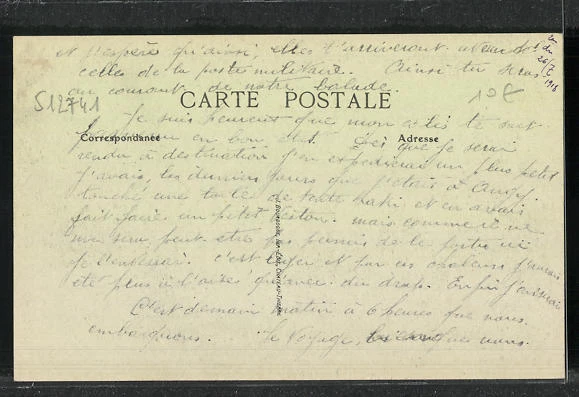 et j'espère qu'ainsi, elles t'arriveront avant
celles de la poste militaire. Ainsi tu seras
au courant de notre balade.
CARTE POSTALE
S12741
10€
26/7/1918
Je suis heureux que mon colis te soit
parvenu en bon état. Dès que je serai
Correspondance
Adresse
rendu à destination j'en expédierai un plus petit
J'avais, les derniers jours que j'étais à
touché une toile de tente kaki et en avais
fait faire un petit veston. mais comme il ne
me sera peut-être pas permis de le porter ici
je l'enverrai. c'est et par ces chaleurs j'aurais
été plus à l'aise qu'avec du drap. Enfin
C'est demain matin à 6 heures que nous
embarquons. Le voyage, que nous